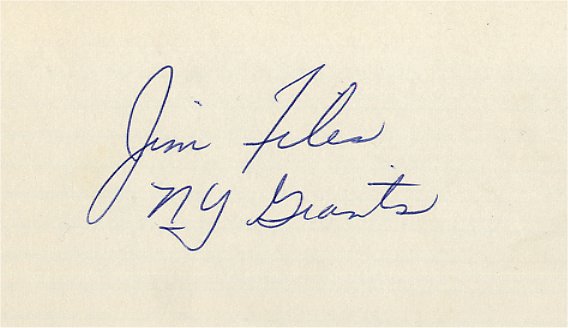 Jim Files
NY Giants